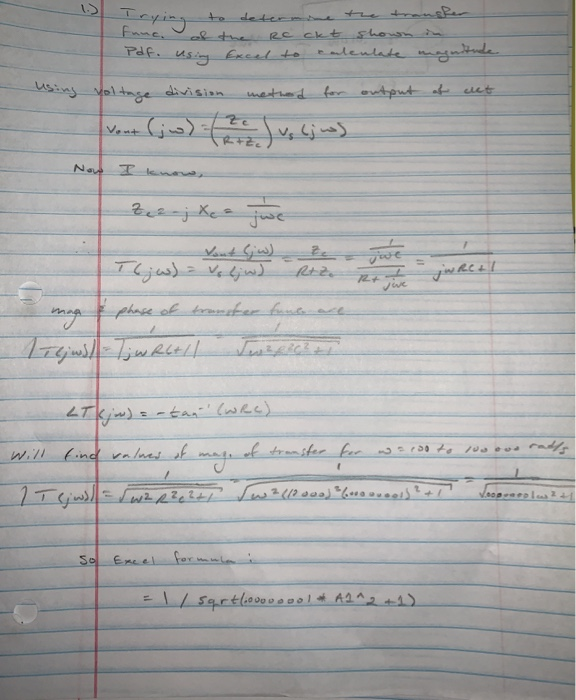 1.) Trying to determine the transfer
func. of the RC ckt shown in
Pdf. Using Excel to calculate magnitude
Using voltage division method for output of ckt
Vout (jω) = (Zc / R+Zc) Vs (jω)
Now I know,
Zc = -j Xc = 1 / jωc
T(jω) = Vout (jω) / Vs (jω) = Zc / R+Zc = 1/jωc / R + 1/jωc = 1 / jωRC+1
mag & phase of transfer func. are
|T(jω)| = 1 / |jωRC+1| = 1 / √ω²R²C²+1
∠T(jω) = -tan⁻¹ (ωRC)
Will find values of mag. of transfer for ω = 100 to 100 000 rad/s
|T(jω)| = 1 / √ω²R²C²+1 = 1 / √ω²(10 000)² +1 = 1
So Excel formula :
= 1 / sqrt(.00000001 * A2^2 +1)